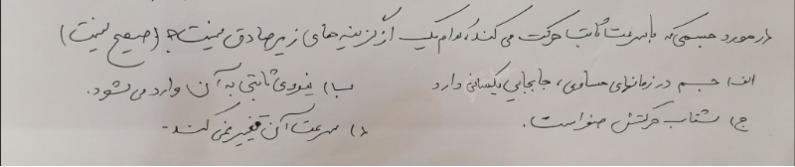 در مورد جسمی که با سرعت ثابت حرکت می کند، کدام یک از گزینه های زیر صادق نیست؟ (صحیح نیست)
الف) جسم در زمانهای مساوی، جابجایی یکسانی دارد ب) نیروی ثابتی به آن وارد می شود.
ج) شتاب حرکتش صفر است. د) سرعت آن تغییر نمی کند.